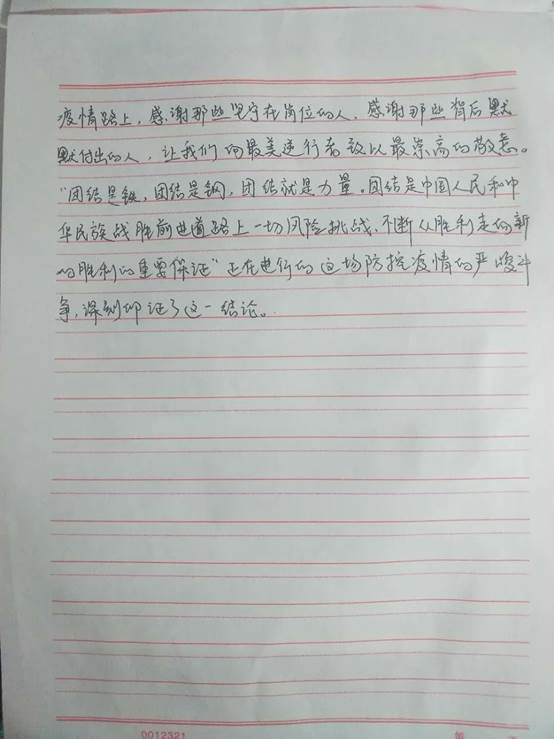 疫情路上，感谢那些坚守在岗位的人，感谢那些背后默
默付出的人，让我们向最美逆行者致以最崇高的敬意。
“团结是铁，团结是钢，团结就是力量。团结是中国人民和中
华民族战胜前进道路上一切风险挑战、不断从胜利走向新
的胜利的重要保证”正在进行的这场防控疫情的严峻斗
争，深刻印证了这一结论。
0012321
第